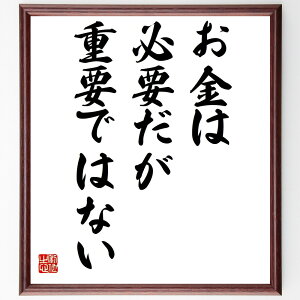 お金は
必要だが
重要ではない